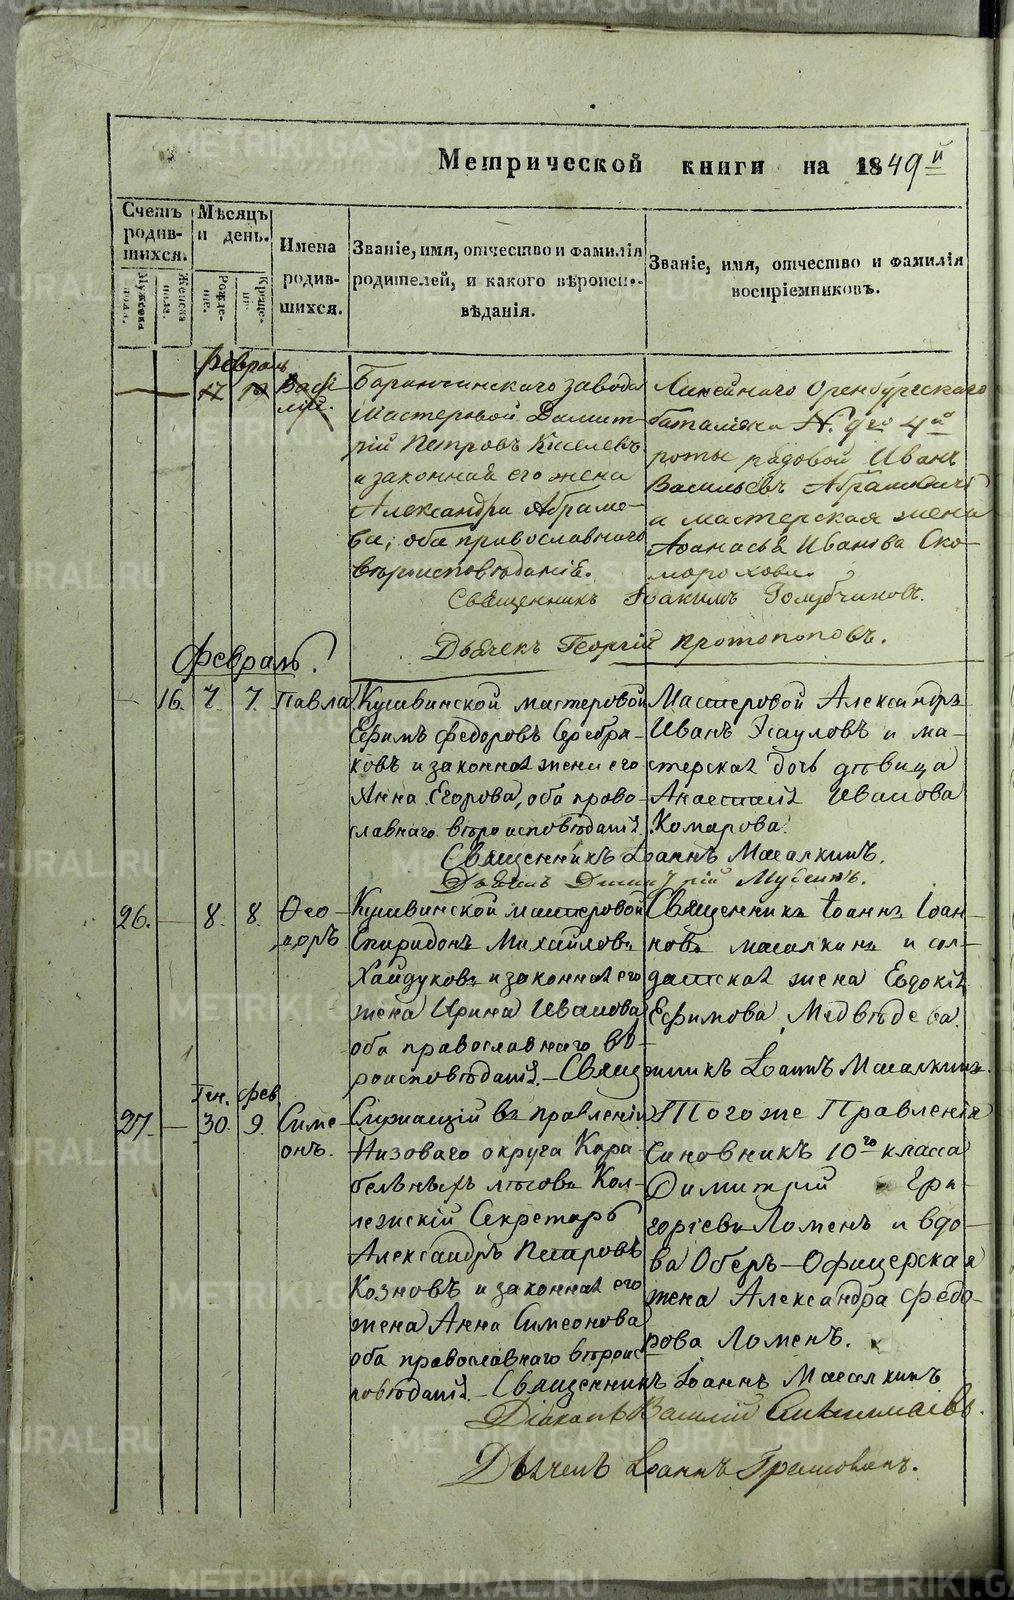 METRIKI.GASO-URAL.RU
Метрической книги на 1849й
Счетъ родив-шихся.
Мужеска пола.
Женска пола.
Мѣсяцъ и день.
Рожде-ние.
Креще-ни.
Имена родив-шихся.
Званіе, имя, отчество и фамилія родителей, и какого вѣроиспо-вѣданія.
Званіе, имя, отчество и фамилія воспріемниковъ.
Февраль
17
Васи-
лій.
Баранчинскаго завода
Мастеровой Димит-
рій Петровъ Киселевъ
и законная его жена
Александра Абрамо-
ва; оба православнаго
вѣроисповѣданія.
Линейнаго Оренбургскаго
баталіона N. 9го 4й
роты рядовой Иванъ
Васильевъ
и мастерская жена
Афанасья Иванова Ско-
морохова.
Священникъ Іоакимъ Голубчиковъ.
Дьячекъ Георгій Протопоповъ.
Февраль.
16. 7. 7. Павла
Кушвинской мастеровой
Ефимъ Федоровъ Серебря-
ковъ и законная жена его
Анна Егорова, оба право-
славнаго вѣроисповѣданія.
Мастеровой Александръ
Иванъ Эсауловъ и ма-
стерская дочь дѣвица
Анастасія Иванова
Комарова.
Священникъ Іоаннъ Масалкинъ.
Дьячекъ Димитрій
26. 8. 8. Фео-
доръ
Кушвинской мастеровой
Спиридонъ Михайловъ
Хайдуковъ и законная его
жена Ирина Иванова
оба православнаго вѣ-
роисповѣданія. – Священникъ Іоаннъ Масалкинъ.
Священникъ Іоаннъ Іоан-
новъ Масалкинъ и сол-
датская жена Евдокія
Ефимова Медвѣдева.
Ген. Фев.
27. 30. 9. Симе-
онъ.
Служащій въ правленіи
Низоваго округа Кора-
бельныхъ лѣсовъ Кол-
лежскій Секретарь
Александръ Петровъ
Козновъ и законная его
жена Анна Симеонова
оба православнаго вѣроис-
повѣданія – Священникъ Іоаннъ Масалкинъ
Того же Правленія
Чиновникъ 10го класса
Димитрій Гри-
горіевъ Ломенъ и вдо-
ва Оберъ-Офицерская
жена Александра Федо-
рова Ломенъ.
Діаконъ Василій
Дьячекъ Іоаннъ